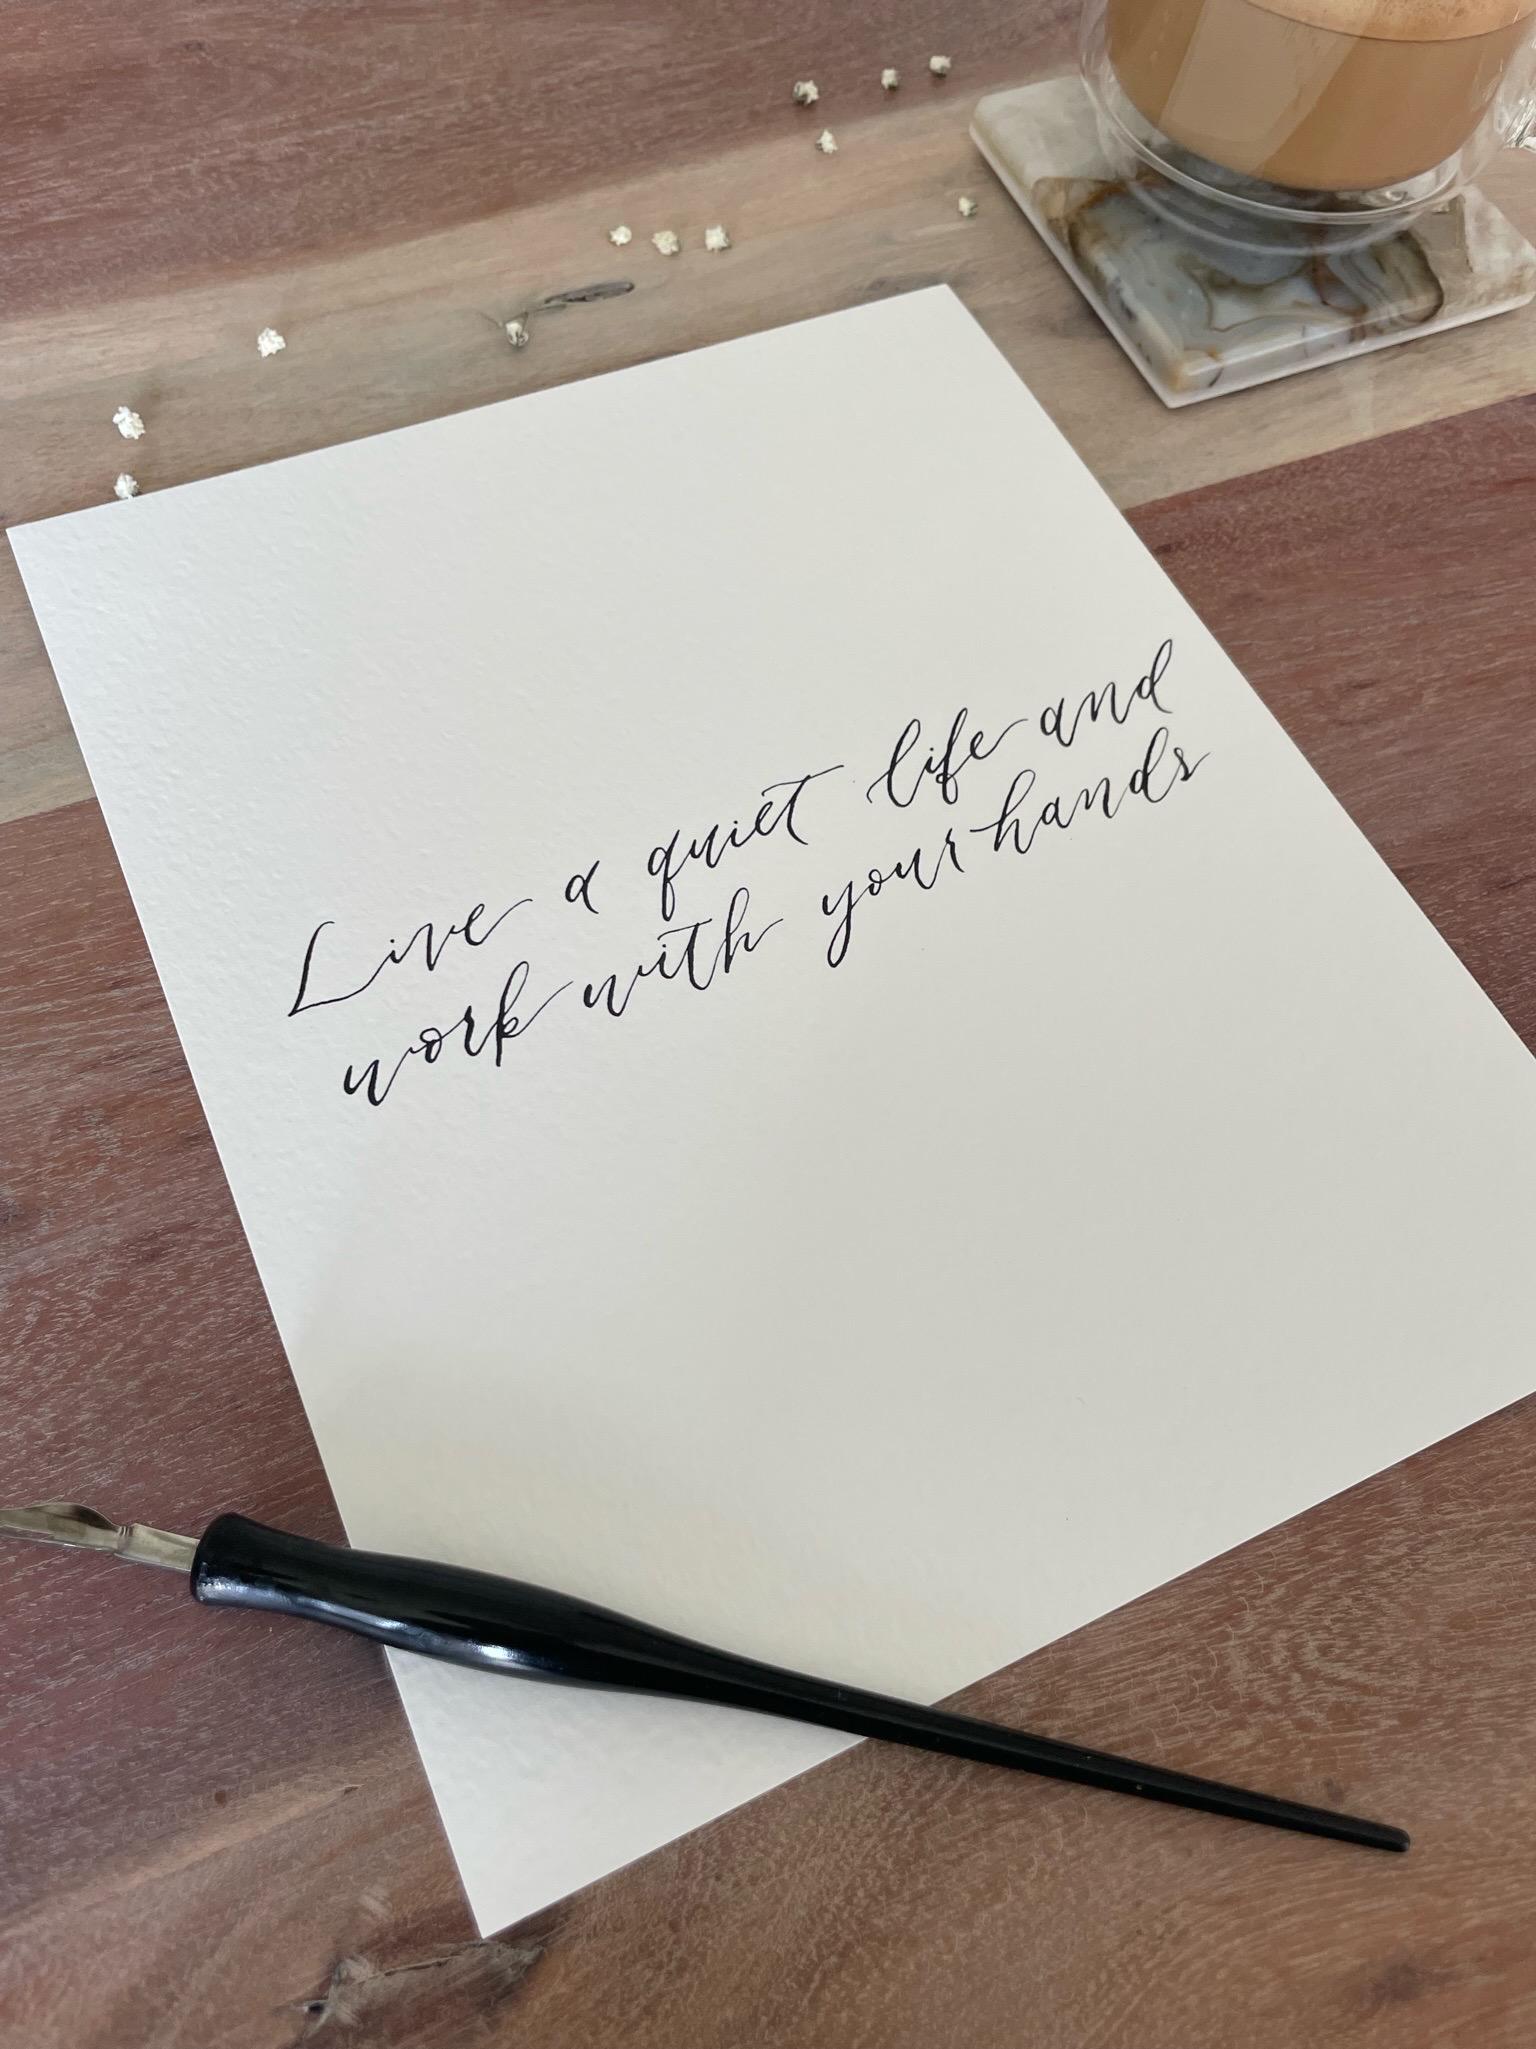 Live a quiet life and
work with your hands